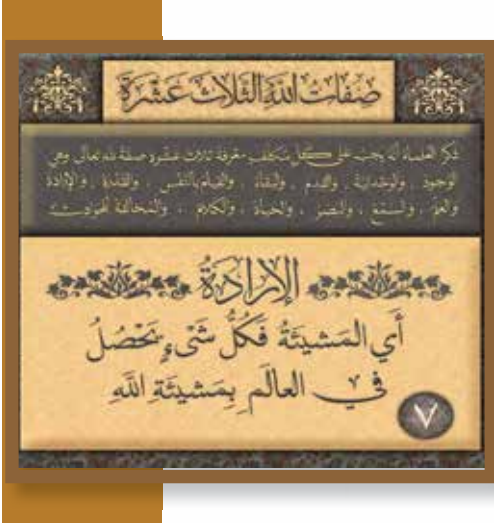 صِفَاتُ اللهِ الثَّلَاثَ عَشْرَةَ
ذكر العلماء أنه يجب على كل مكلف معرفة ثلاث عشرة صفة لله تعالى وهي
الوجود ، والوحدانية ، والقدم ، والبقاء ، والقيام بالنفس ، والقدرة ، والإرادة
والعلم ، والسمع ، والبصر ، والحياة ، والكلام ، والمخالفة للحوادث
الإِرَادَةُ
أَي المَشيئَةُ فَكُلُّ شَىْءٍ يَحْصُلُ
في العالَمِ بِمَشيئَةِ اللَّهِ
٧